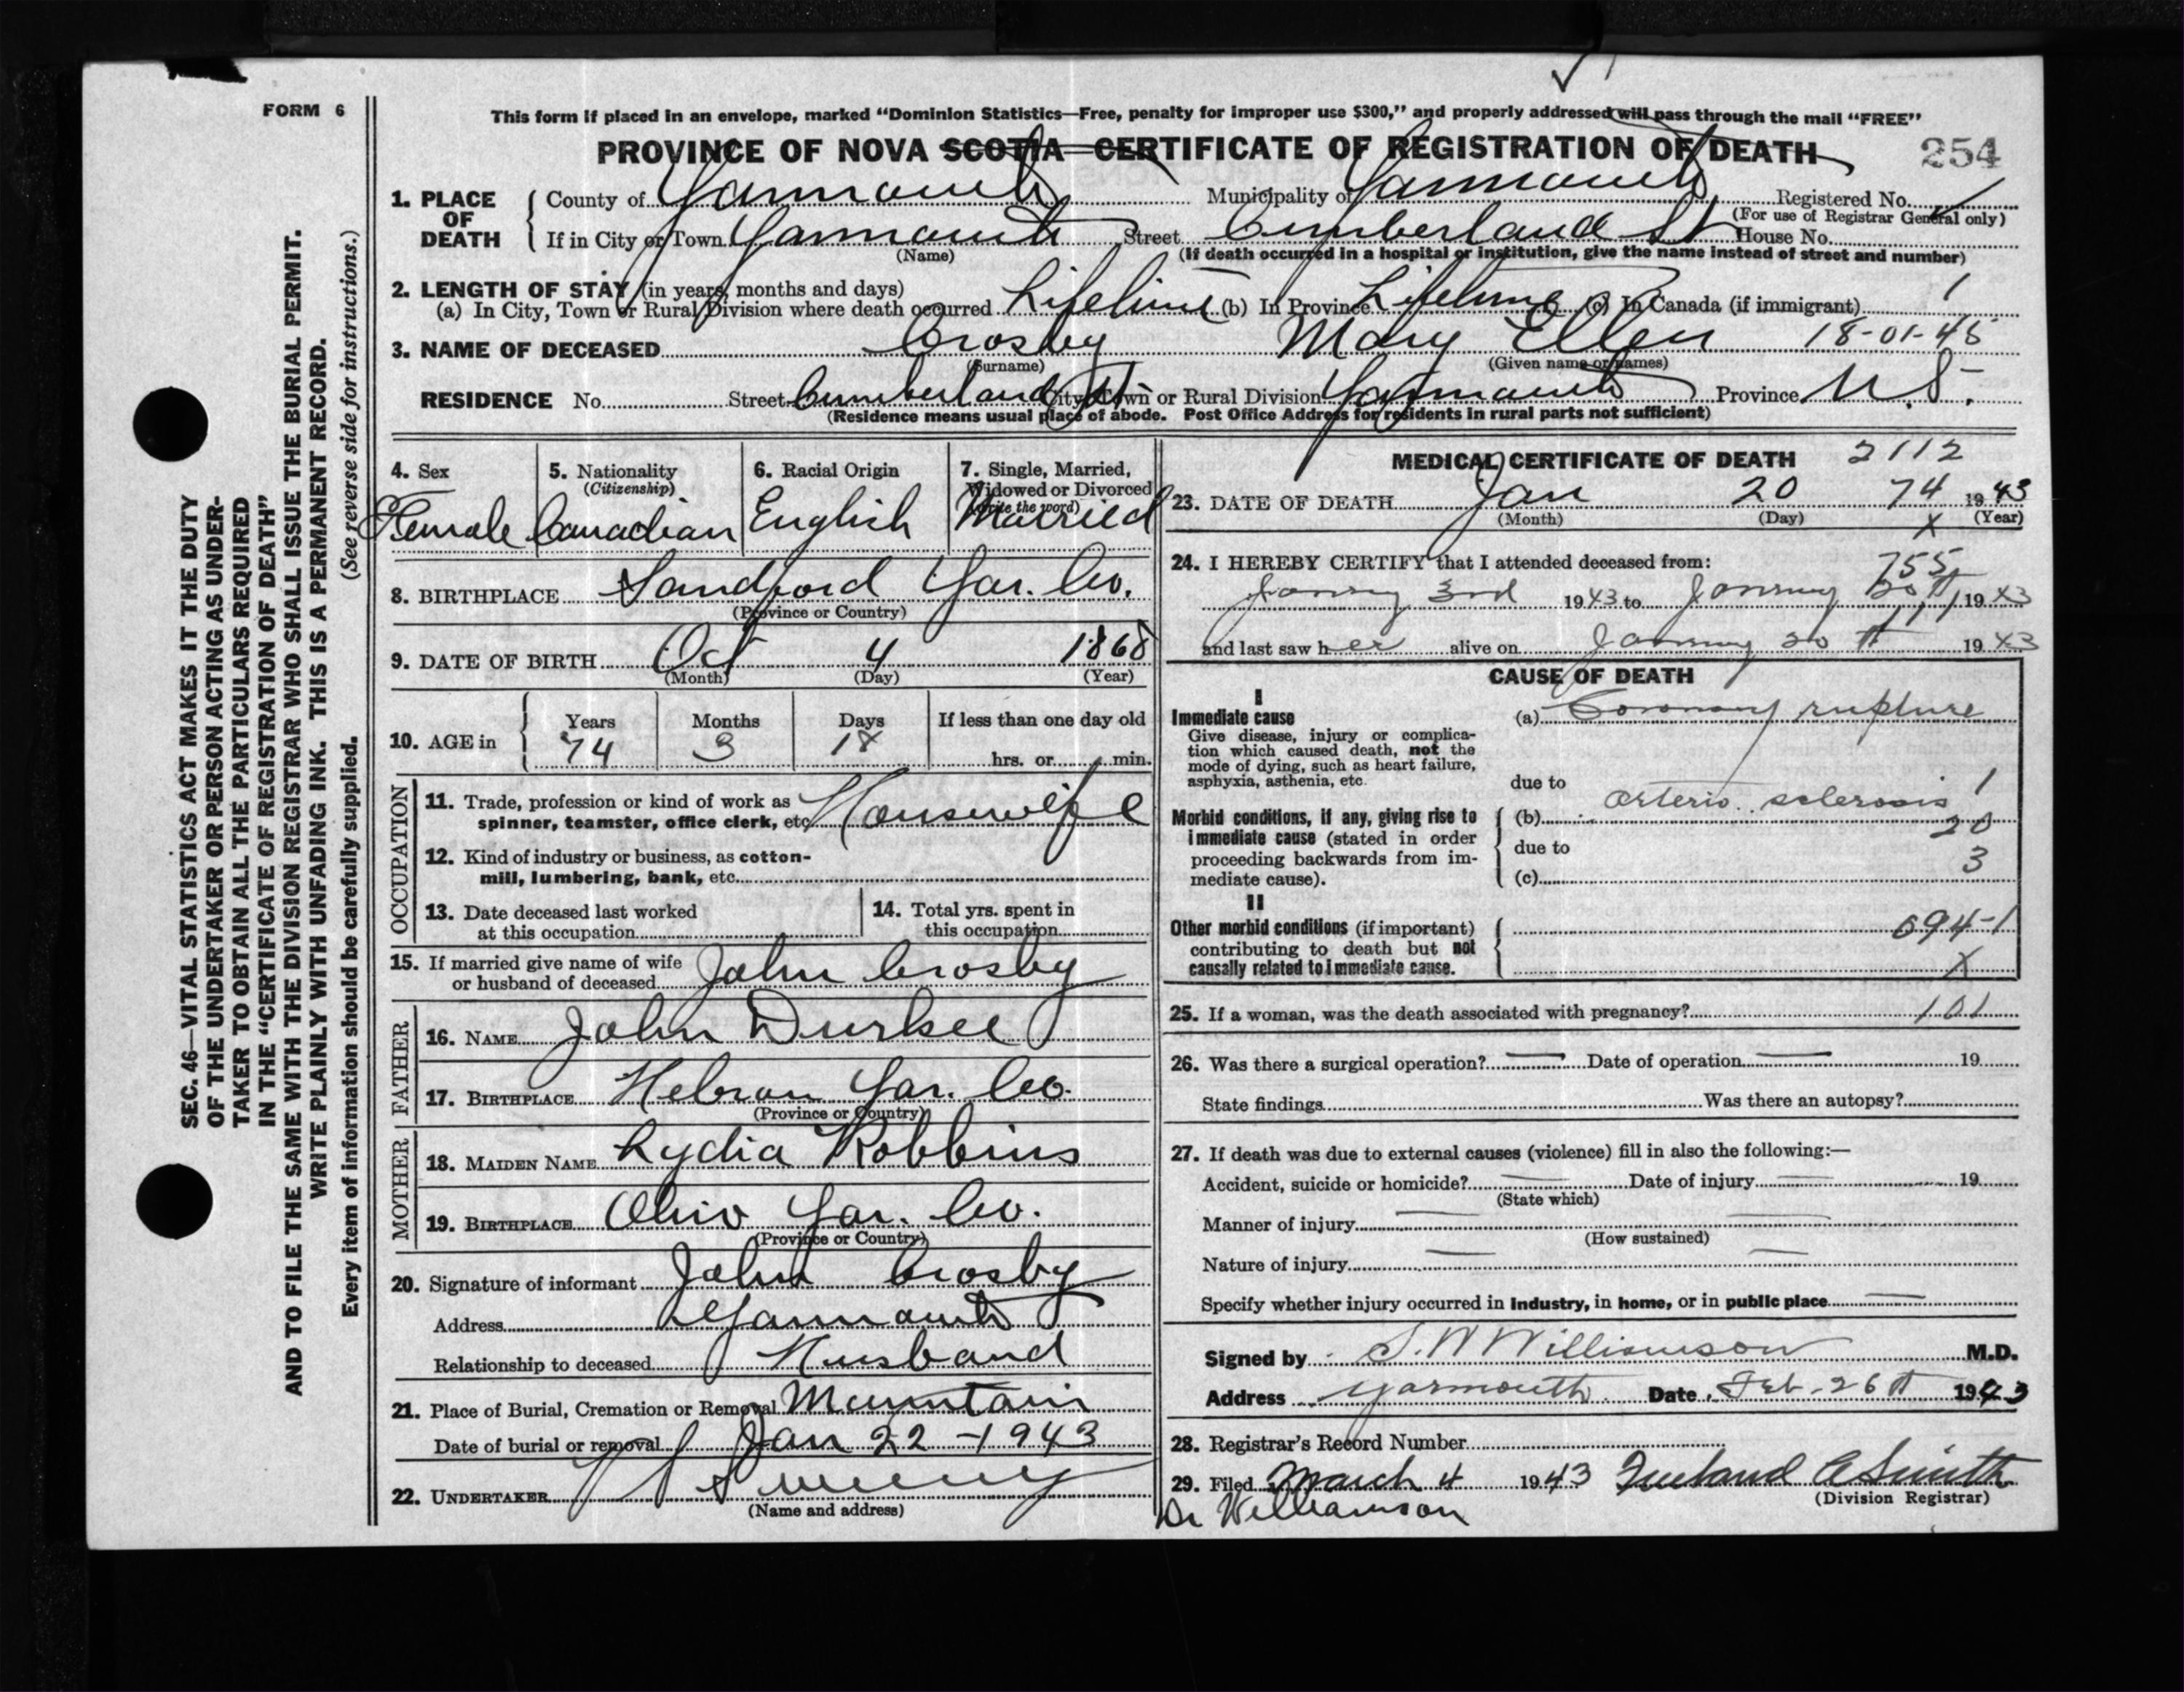 FORM 6
This form if placed in an envelope, marked "Dominion Statistics—Free, penalty for improper use $300," and properly addressed will pass through the mail "FREE"
PROVINCE OF NOVA SCOTIA CERTIFICATE OF REGISTRATION OF DEATH 254
1. PLACE OF DEATH
County of Yarmouth Municipality of Yarmouth Registered No.
(For use of Registrar General only)
If in City or Town Yarmouth Street Cumberland St House No.
(Name) (If death occurred in a hospital or institution, give the name instead of street and number)
2. LENGTH OF STAY (in years, months and days)
(a) In City, Town or Rural Division where death occurred Lifetime (b) In Province Lifetime (c) In Canada (if immigrant) 1
3. NAME OF DECEASED Crosby Mary Ellen 18-01-45
(Surname) (Given name or names)
RESIDENCE No. Street Cumberland St City, Town or Rural Division Yarmouth Province N.S.
(Residence means usual place of abode. Post Office Address for residents in rural parts not sufficient)
4. Sex
Female
5. Nationality
(Citizenship)
Canadian
6. Racial Origin
English
7. Single, Married,
Widowed or Divorced
(Write the word)
Married
8. BIRTHPLACE Sandford Yar. Co.
(Province or Country)
9. DATE OF BIRTH Oct 4 1868
(Month) (Day) (Year)
10. AGE in Years Months Days If less than one day old
74 3 18 hrs. or min.
OCCUPATION
11. Trade, profession or kind of work as
spinner, teamster, office clerk, etc. Housewife
12. Kind of industry or business, as cotton-
mill, lumbering, bank, etc.
13. Date deceased last worked
at this occupation
14. Total yrs. spent in
this occupation
15. If married give name of wife
or husband of deceased John Crosby
FATHER
16. NAME John Durkee
17. BIRTHPLACE Hebron Yar. Co.
(Province or Country)
MOTHER
18. MAIDEN NAME Lydia Robbins
19. BIRTHPLACE Ohio Yar. Co.
(Province or Country)
20. Signature of informant John Crosby
Address Yarmouth
Relationship to deceased Husband
21. Place of Burial, Cremation or Removal Mountain
Date of burial or removal Jan 22 - 1943
22. UNDERTAKER V S Sweeny
(Name and address)
MEDICAL CERTIFICATE OF DEATH 2112
23. DATE OF DEATH Jan 20 74 1943
(Month) (Day) (Year)
X
24. I HEREBY CERTIFY that I attended deceased from:
755
January 3rd 1943 to January 20th 1943
and last saw her alive on January 20th 1943
CAUSE OF DEATH
I
Immediate cause
Give disease, injury or complica-
tion which caused death, not the
mode of dying, such as heart failure,
asphyxia, asthenia, etc.
(a) Coronary rupture
due to
Morbid conditions, if any, giving rise to
immediate cause (stated in order
proceeding backwards from im-
mediate cause).
(b) arterio sclerosis 1
20
due to
3
(c)
II
Other morbid conditions (if important)
contributing to death but not
causally related to immediate cause.
094-1
X
25. If a woman, was the death associated with pregnancy? 101
26. Was there a surgical operation? — Date of operation — 19
State findings Was there an autopsy?
27. If death was due to external causes (violence) fill in also the following:—
Accident, suicide or homicide? — Date of injury — 19
(State which)
Manner of injury — —
(How sustained)
Nature of injury — —
Specify whether injury occurred in Industry, in home, or in public place —
Signed by S. W Williamson M.D.
Address Yarmouth Date Feb. 26th 1943
28. Registrar's Record Number
29. Filed March 4 1943 A Smith
(Division Registrar)
Dr Williamson
SEC. 46—VITAL STATISTICS ACT MAKES IT THE DUTY
OF THE UNDERTAKER OR PERSON ACTING AS UNDER-
TAKER TO OBTAIN ALL THE PARTICULARS REQUIRED
IN THE "CERTIFICATE OF REGISTRATION OF DEATH"
AND TO FILE THE SAME WITH THE DIVISION REGISTRAR WHO SHALL ISSUE THE BURIAL PERMIT.
WRITE PLAINLY WITH UNFADING INK. THIS IS A PERMANENT RECORD.
Every item of information should be carefully supplied. (See reverse side for instructions.)